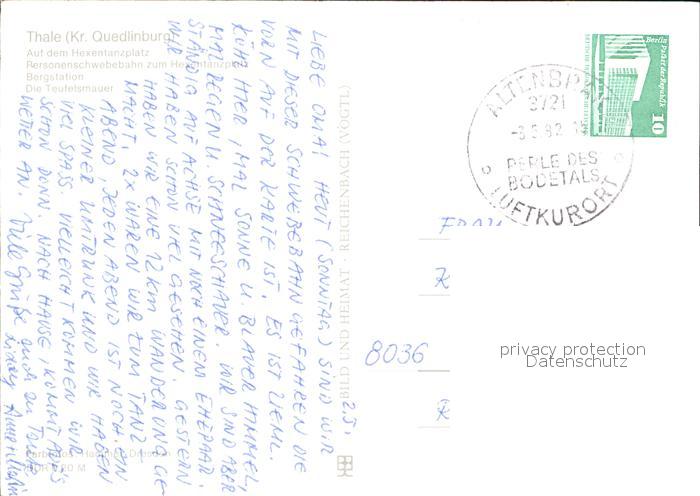 Thale (Kr. Quedlinburg)
Auf dem Hexentanzplatz
Personenschwebebahn zum Hexentanzplatz
Bergstation
Die Teufelsmauer
2.5.
LIEBE OMA! HEUT (SONNTAG) SIND WIR
MIT DIESER SCHWEBEBAHN GEFAHREN DIE
VORN AUF DER KARTE IST. ES IST ZIEML.
KÜHL HIER, MAL SONNE U. BLAUER HIMMEL,
MAL REGEN U. SCHNEESCHAUER. WIR SIND ABER
STÄNDIG AUF ACHSE MIT NOCH EINEM EHEPAAR.
WIR HABEN SCHON VIEL GESEHEN. GESTERN
HABEN WIR EINE 12 KM WANDERUNG GE-
MACHT. 2x WAREN WIR ZUM TANZ!
ABEND, JEDEN ABEND IST NOCH EIN
KLEINER UMTRUNK UND WIR HABEN
VIEL SPASS. VIELLEICHT KOMMEN WIR
SCHON DONN. NACH HAUSE, KOMMT AUFS
WETTER AN. Viele Grüße auch an Tante
BILD UND HEIMAT · REICHENBACH (VOGTL)
Berlin Palast der Republik
10
3721
-3.5.82
PERLE DES
BODETALS
LUFTKURORT
8036
privacy protection
Datenschutz